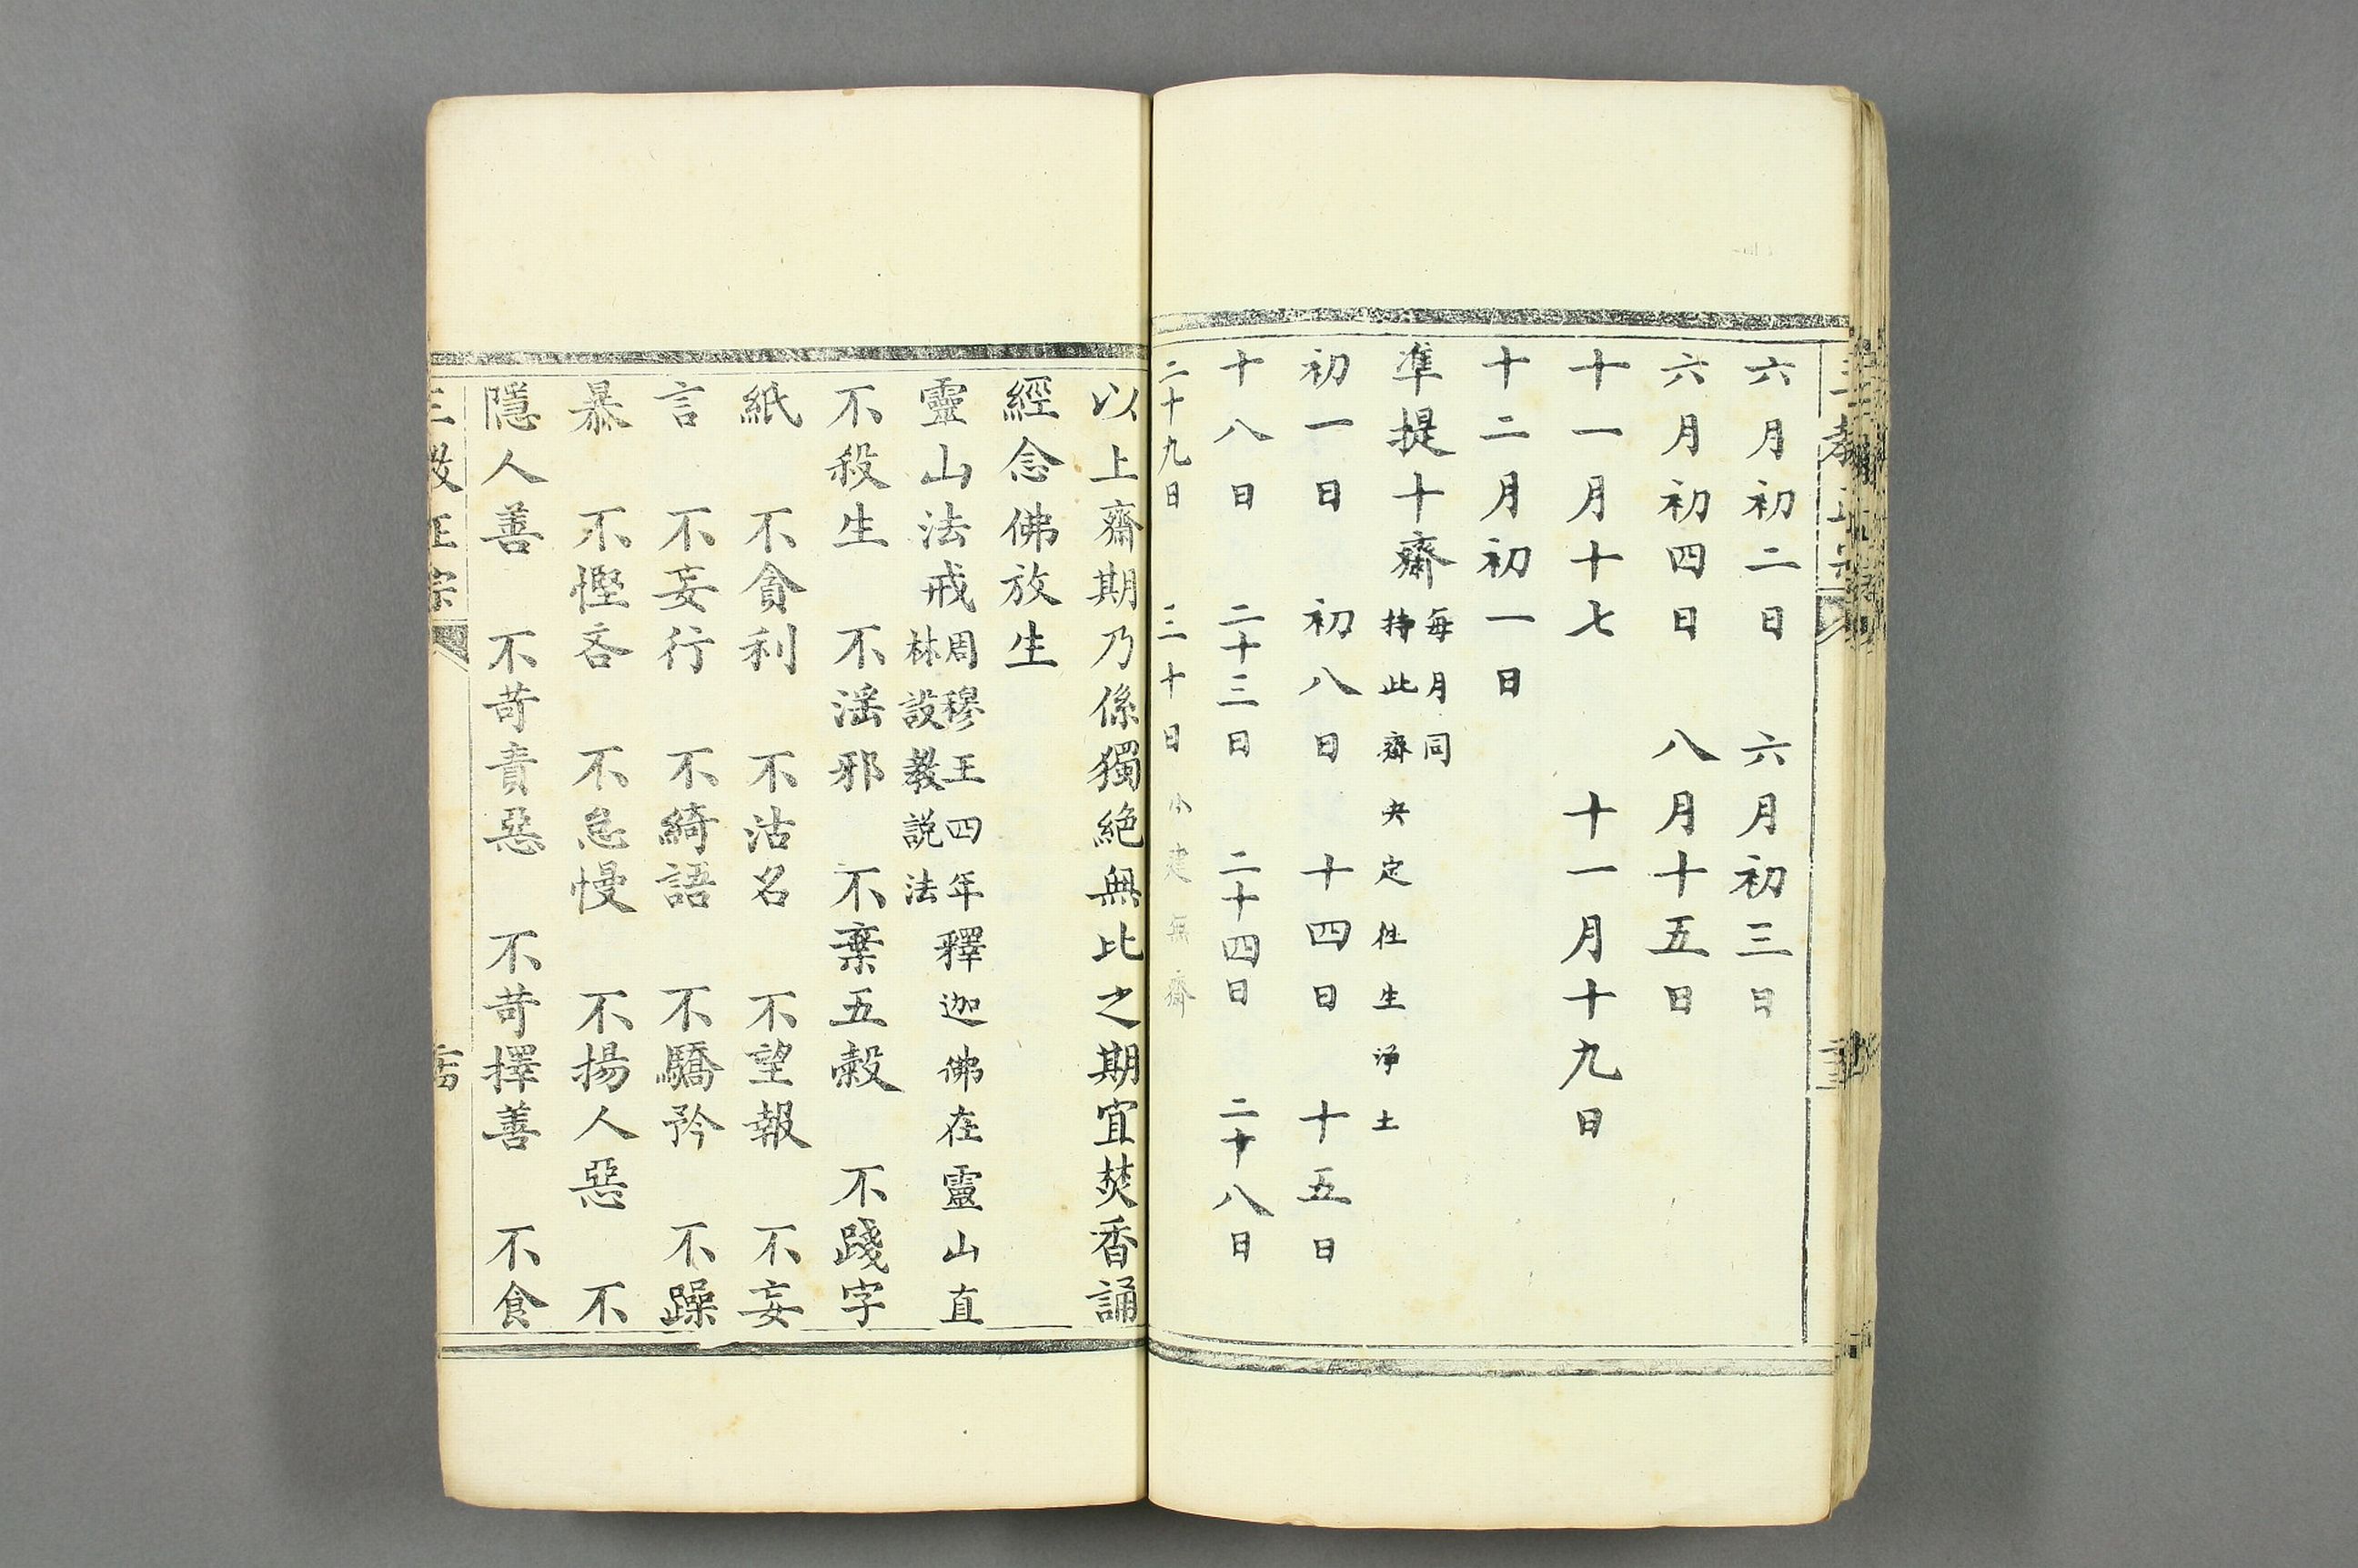 六月初二日　六月初三日
六月初四日　八月十五日
十一月十七　十一月十九日
十二月初一日
準提十齋 每月同
持此齋夬定往生淨土
初一日　初八日　十四日　十五日
十八日　二十三日　二十四日　二十八日
二十九日　三十日　小建無齋
以上齋期乃係獨絕無比之期宜焚香誦
經念佛放生
靈山法戒 周穆王四年釋迦佛在靈山直
林設教説法
不殺生　不滛邪　不棄五榖　不踐字
紙　不貪利　不沽名　不望報　不妄
言　不妄行　不綺語　不驕矜　不躁
暴　不慳吝　不怠慢　不揚人惡　不
隱人善　不苛責惡　不苛擇善　不食
三教正宗